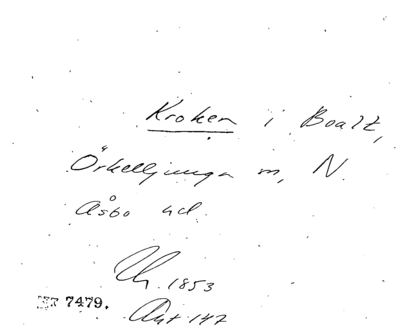 Kroken i Boalt,
Örkelljunga m, N.
Åsbo hd.
1853
7479.
147